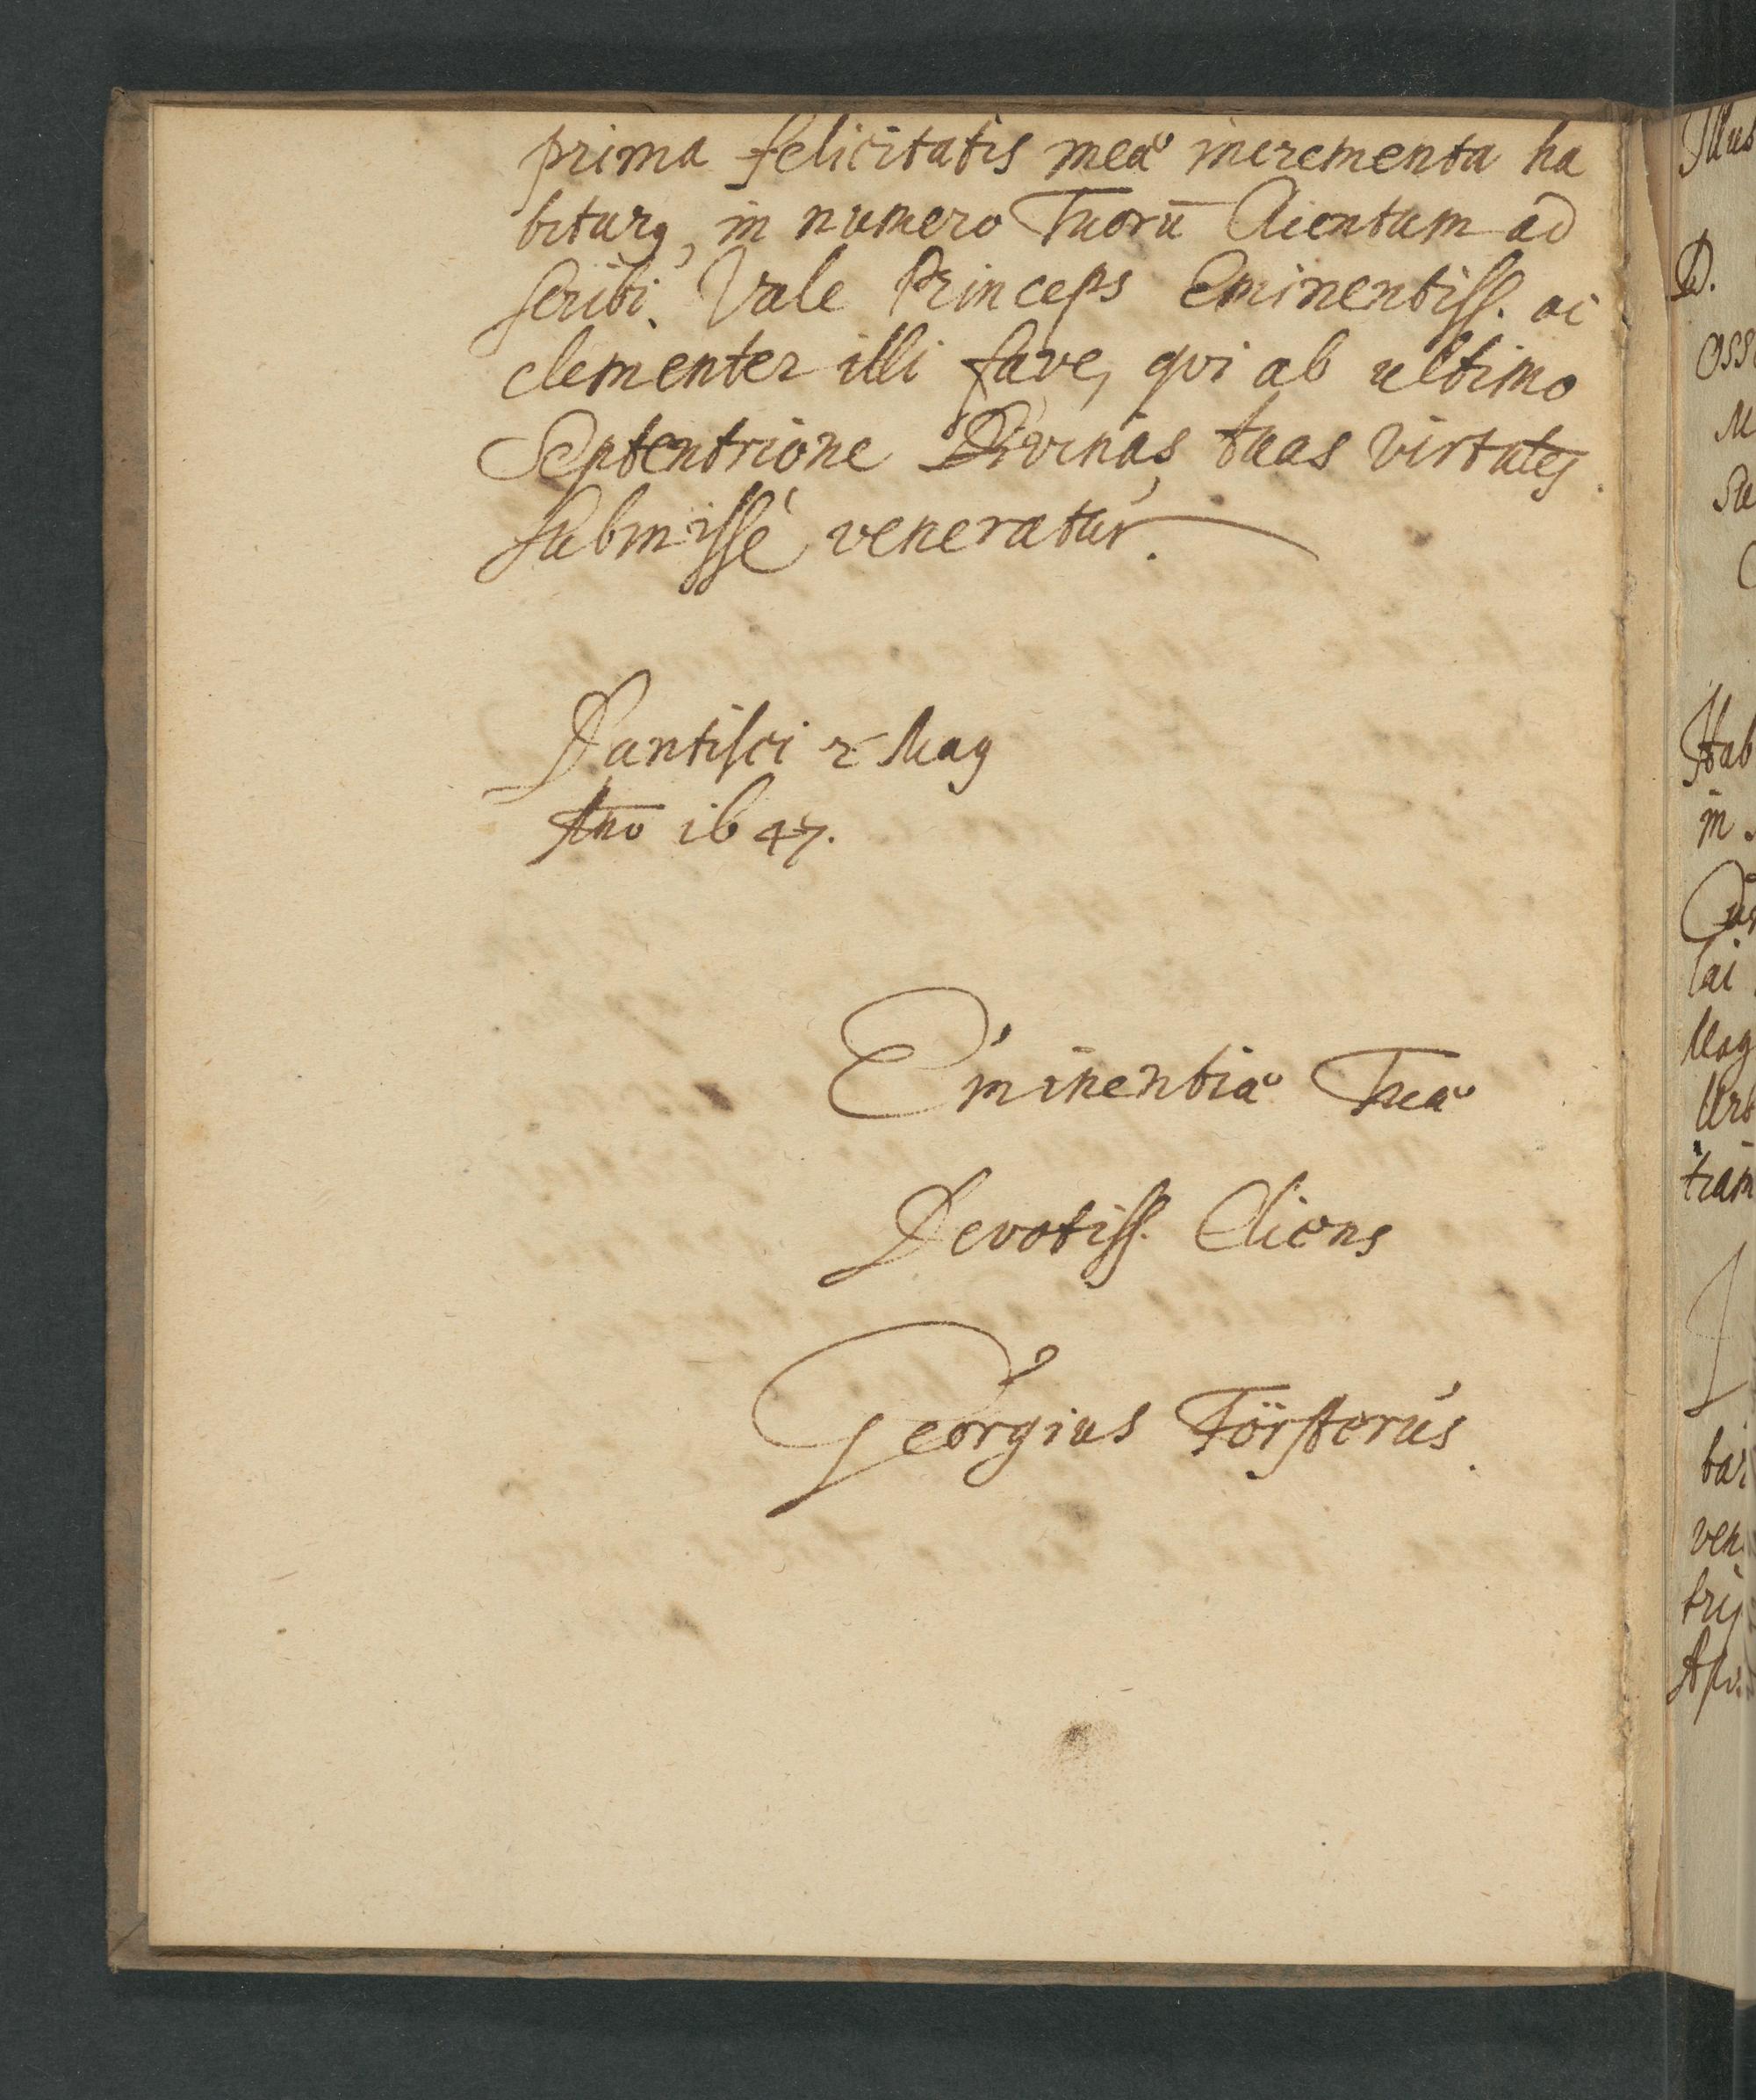 prima felicitatis meæ incrementa ha
biturq, in numero Tuorū Clientum ad
scribi. Vale Princeps Eminentiss. ac
clementer illi fave, qvi ab ultimo
Septentrione Divinas tuas virtutes
submissè veneratur.
Dantisci 2 Maÿ
Ano 1647.
Eminentiæ Tuæ
Devotiss. Cliens
Georgius Försterus.